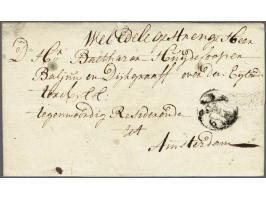 Wel Edele Gestrenge Heer
D Hr Balthazar Huijdecooper
Bailjuw en Dijkgraaff over den Eijland
texel &&
tegenwoordig Resideerende
tot
Amsterdam